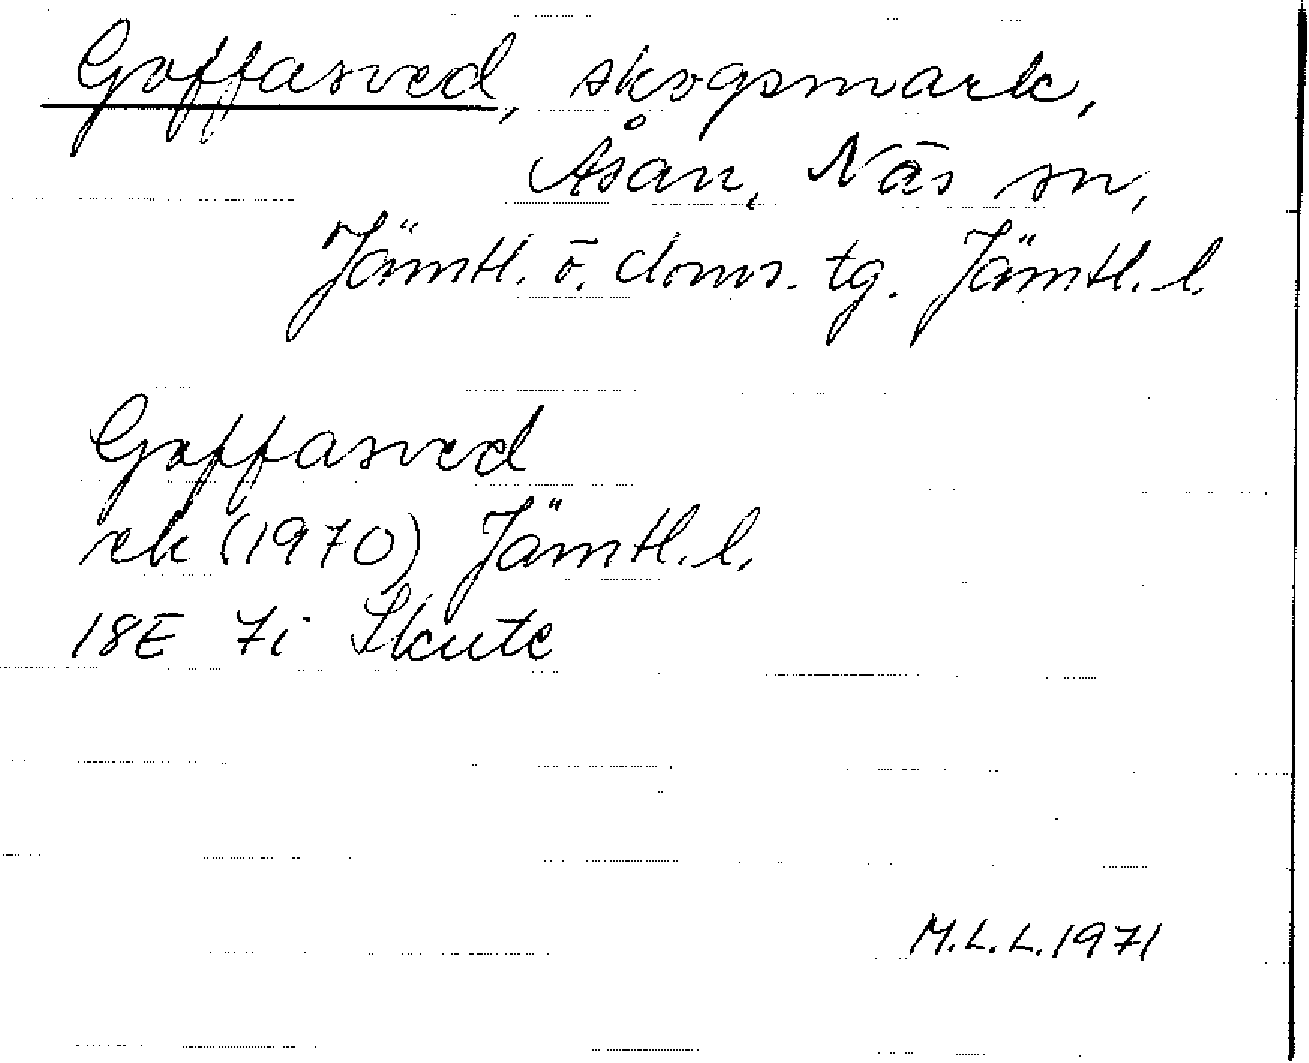 Goffasved, skogsmark,
Åsan, Näs sn,
Jämtl. ö. doms. tg. Jämtl. l.
Goffasved
ek (1970) Jämtl. l.
18E 7i Skute
M.L.L. 1971